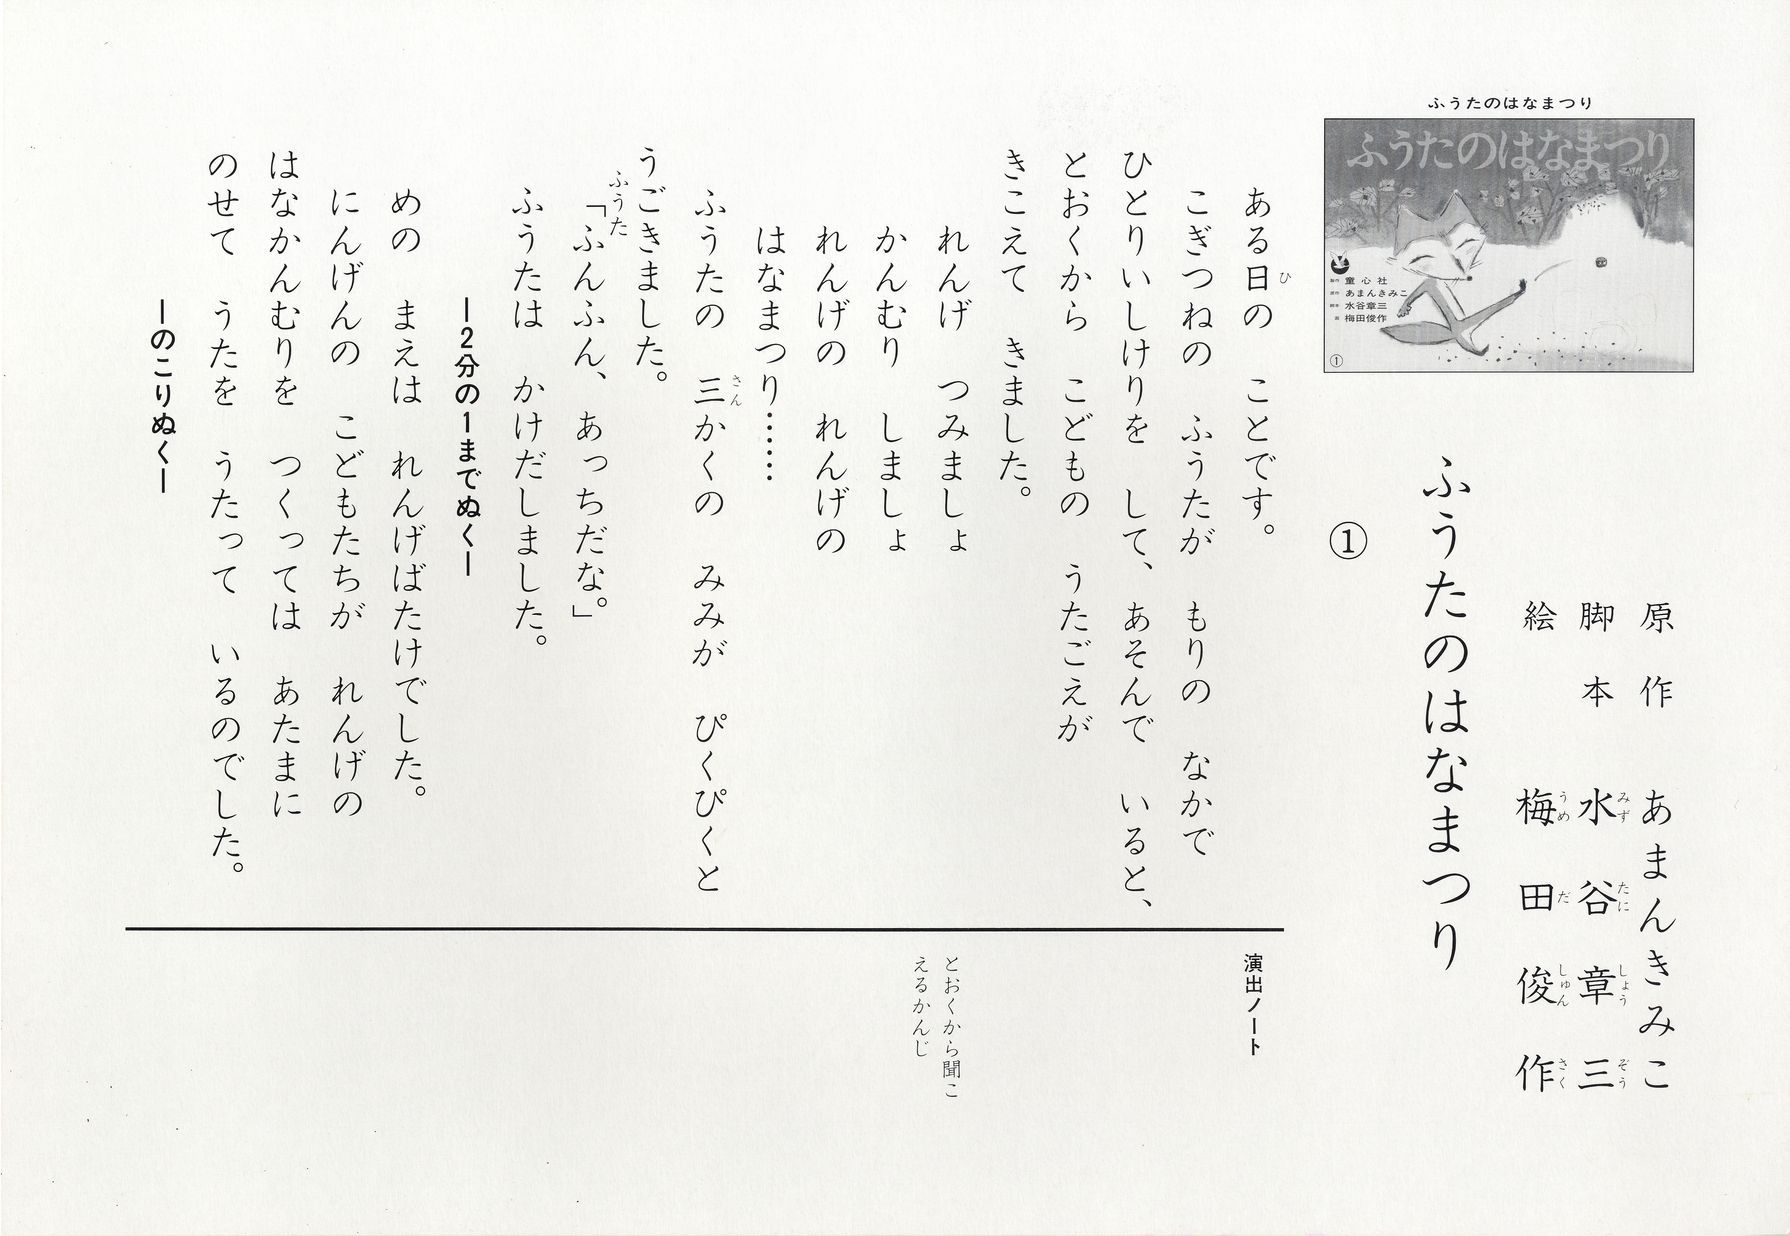 ふうたのはなまつり
ふうたのはなまつり
童心社
あまんきみこ
水谷章三
梅田俊作
①
原作　あまんきみこ
脚本　水谷章三
みず たに しょう ぞう
絵　梅田俊作
うめ だ しゅん さく
ふうたのはなまつり
①
ある日の　ことです。
ひ
こぎつねの　ふうたが　もりの　なかで
ひとりいしけりを　して、あそんで　いると、
とおくから　こどもの　うたごえが
きこえて　きました。
れんげ　つみましょ
かんむり　しましょ
れんげの　れんげの
はなまつり……
ふうたの　三かくの　みみが　ぴくぴくと
さん
うごきました。
ふうた
「ふんふん、あっちだな。」
ふうたは　かけだしました。
―2分の1までぬく―
めの　まえは　れんげばたけでした。
にんげんの　こどもたちが　れんげの
はなかんむりを　つくっては　あたまに
のせて　うたを　うたって　いるのでした。
―のこりぬく―
演出ノート
とおくから聞こ
えるかんじ